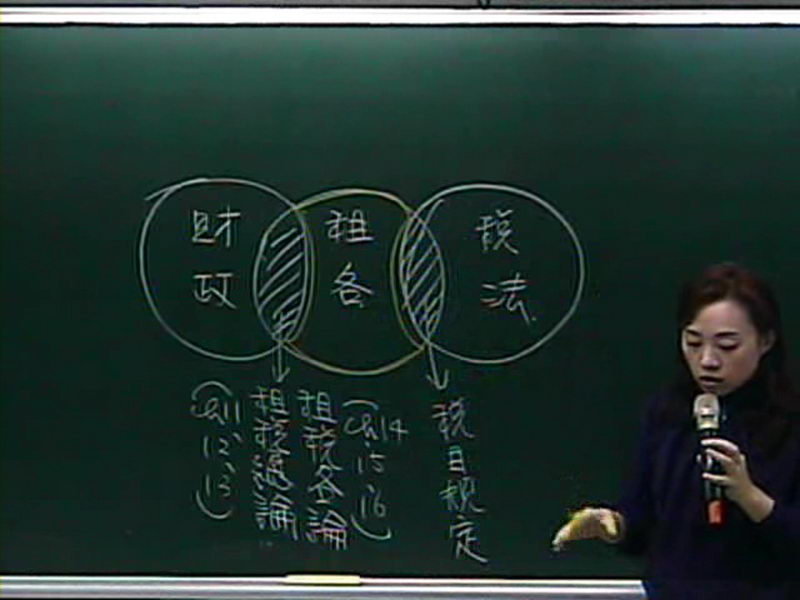 財政
租各
稅法
(ch11
12、
13)
租稅總論
租稅各論
(ch14
15
16)
稅目規定